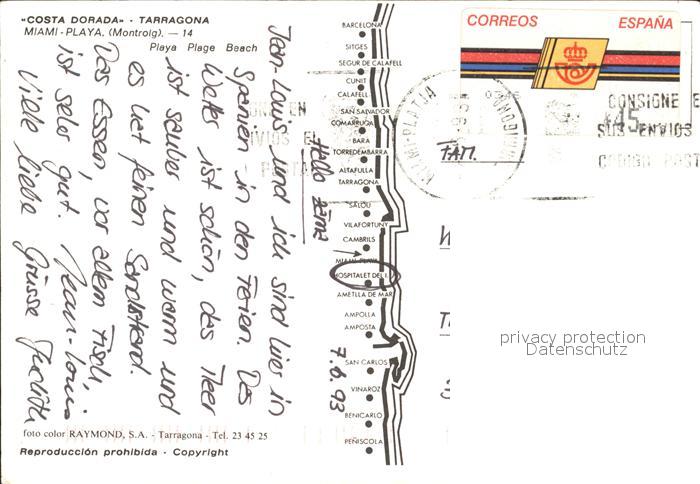 "COSTA DORADA" - TARRAGONA
MIAMI-PLAYA, (Montroig). — 14
Playa Plage Beach
7.6.93
Hallo zäme
Jean-Louis und ich sind hier in
Spanien - in den Ferien. Das
Wetter ist schön, das Meer
ist sauber und warm und
es hat feinen Sandstrand.
Das Essen, vor allem Fisch,
ist sehr gut. Jean-Louis
Viele liebe Grüsse Judith
foto color RAYMOND, S.A. - Tarragona - Tel. 23 45 25
Reproducción prohibida - Copyright
BARCELONA
SITGES
SEGUR DE CALAFELL
CUNIT
CALAFELL
SAN SALVADOR
COMARRUGA
BARA
TORREDEMBARRA
ALTAFULLA
TARRAGONA
SALOU
VILAFORTUNY
CAMBRILS
MIAMI-PLAYA
HOSPITALET DEL I.
AMETLLA DE MAR
AMPOLLA
AMPOSTA
SAN CARLOS
VINAROZ
BENICARLO
PEÑISCOLA
CORREOS ESPAÑA
45
CONSIGNE E
SUS ENVIOS
CODIGO POST
MIAMI-PLATJA
FAM.
privacy protection
Datenschutz